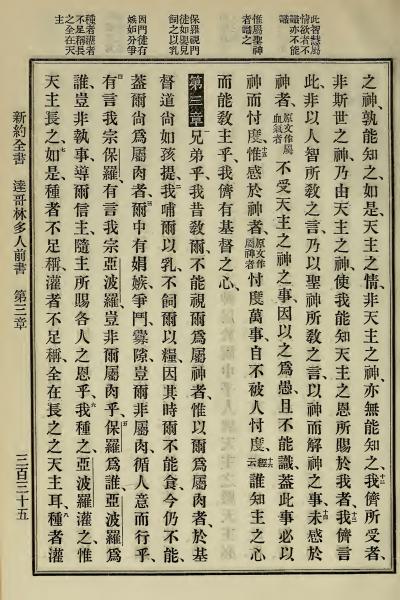 此智慧屬
情欲者不
識亦不能
識
惟屬聖神
者識之
保羅視門
徒如嬰兒
飼之以乳
因門徒有
嫉妬分爭
種者灌者
不足稱長
之全在天
主
之神、孰能知之、如是、天主之情、非天主之神、亦無能知之、十二我儕所受者、
非斯世之神、乃由天主之神、使我能知天主之恩所賜於我者、十三我儕言
此、非以人智所敎之言、乃以聖神所敎之言、以神而解神之事、十四未感於
神者、原文作屬血氣者不受天主之神之事、因以之爲愚、且不能識、蓋此事必以
神而忖度、十五惟感於神者、原文作屬神者忖度萬事、自不被人忖度、十六經云誰知主之心
而能敎主乎、我儕有基督之心、
第三章 兄弟乎、我昔敎爾、不能視爾爲屬神者、惟以爾爲屬肉者、於基
督道尚如孩提、二我哺爾以乳、不飼爾以糧、因其時爾不能食、今仍不能、
三蓋爾尚爲屬肉者、爾中有娼嫉爭鬥釁隙、豈爾非屬肉、循人意而行乎、
四有言我宗保羅、有言我宗亞波羅、豈非爾屬肉乎、五保羅爲誰、亞波羅爲
誰、豈非執事、導爾信主、隨主所賜各人之恩乎、六我種之、亞波羅灌之、惟
天主長之、七如是、種者不足稱、灌者不足稱、全在長之之天主耳、八種者灌
新約全書 達哥林多人前書 第三章 三百三十五